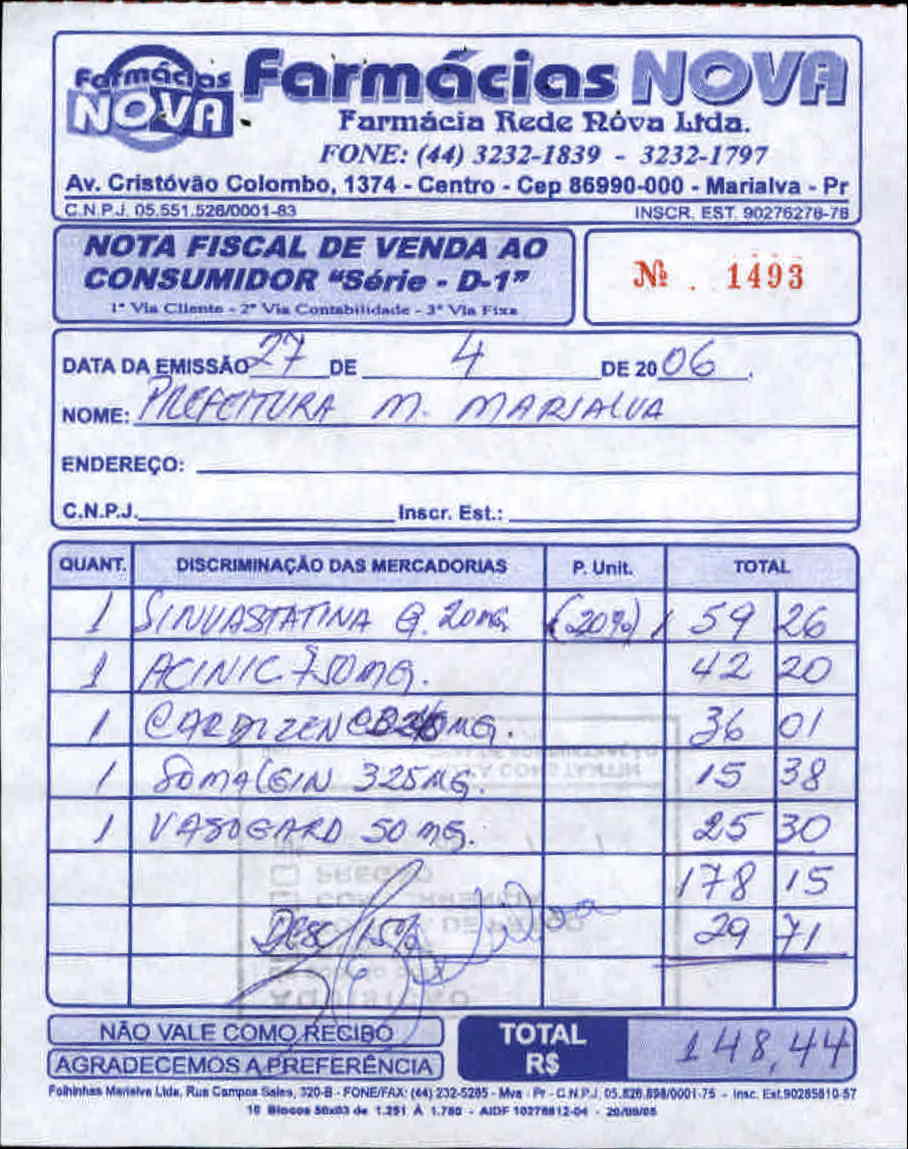 Farmácias NOVA
Farmácias NOVA
Farmácia Rede Nóva Ltda.
FONE: (44) 3232-1839 - 3232-1797
Av. Cristóvão Colombo, 1374 - Centro - Cep 86990-000 - Marialva - Pr
C.N.P.J. 05.551.526/0001-83 INSCR. EST. 90276278-78
NOTA FISCAL DE VENDA AO
CONSUMIDOR "Série - D-1"
1ª Via Cliente - 2ª Via Contabilidade - 3ª Via Fixa
Nº . 1493
DATA DA EMISSÃO 27 DE 4 DE 2006
NOME: PREFEITURA M. MARIALVA
ENDEREÇO:
C.N.P.J. Inscr. Est.:
QUANT. DISCRIMINAÇÃO DAS MERCADORIAS P. Unit. TOTAL
1 SINVASTATINA 20MG (20%) 59 26
1 ACINIC 750MG. 42 20
1 CARDIZEN MG. 36 01
1 SOMALGIN 325MG. 15 38
1 VASOGARD 50 MG. 25 30
178 15
DESC 15% 29 71
NÃO VALE COMO RECIBO
AGRADECEMOS A PREFERÊNCIA
TOTAL R$ 148,44
Folhinhas Marialva Ltda. Rua Campos Sales, 320-B - FONE/FAX: (44) 232-5285 - Mva - Pr - C.N.P.J. 05.826.898/0001-75 - Insc. Est.90285810-57
10 Blocos 50x03 de 1.251 À 1.750 - AIDF 10276812-04 - 20/09/05